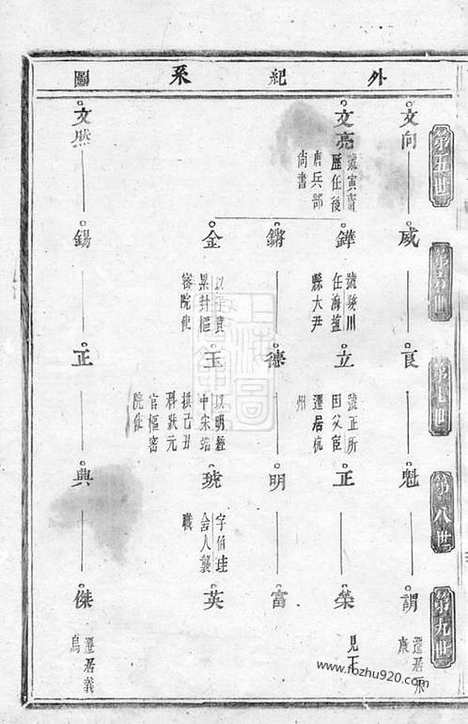 外紀系圖
第五世
第六世
第七世
第八世
第九世
文向
威
良
魁
謂
遷居永
康
文亮
號寅齋
歷任後
唐兵部
尚書
鏵
號幾川
任海鹽
縣大尹
立
號正所
因父宦
遷居杭
州
正
榮
見下
鏘
德
明
富
金
以子貴
累封樞
密院使
玉
以明經
中宋端
拱己丑
科狀元
官樞密
院使
琥
字伯珪
舍人襲
職
英
文
錫
正
典
傑
遷居義
烏
www.fozhu920.com